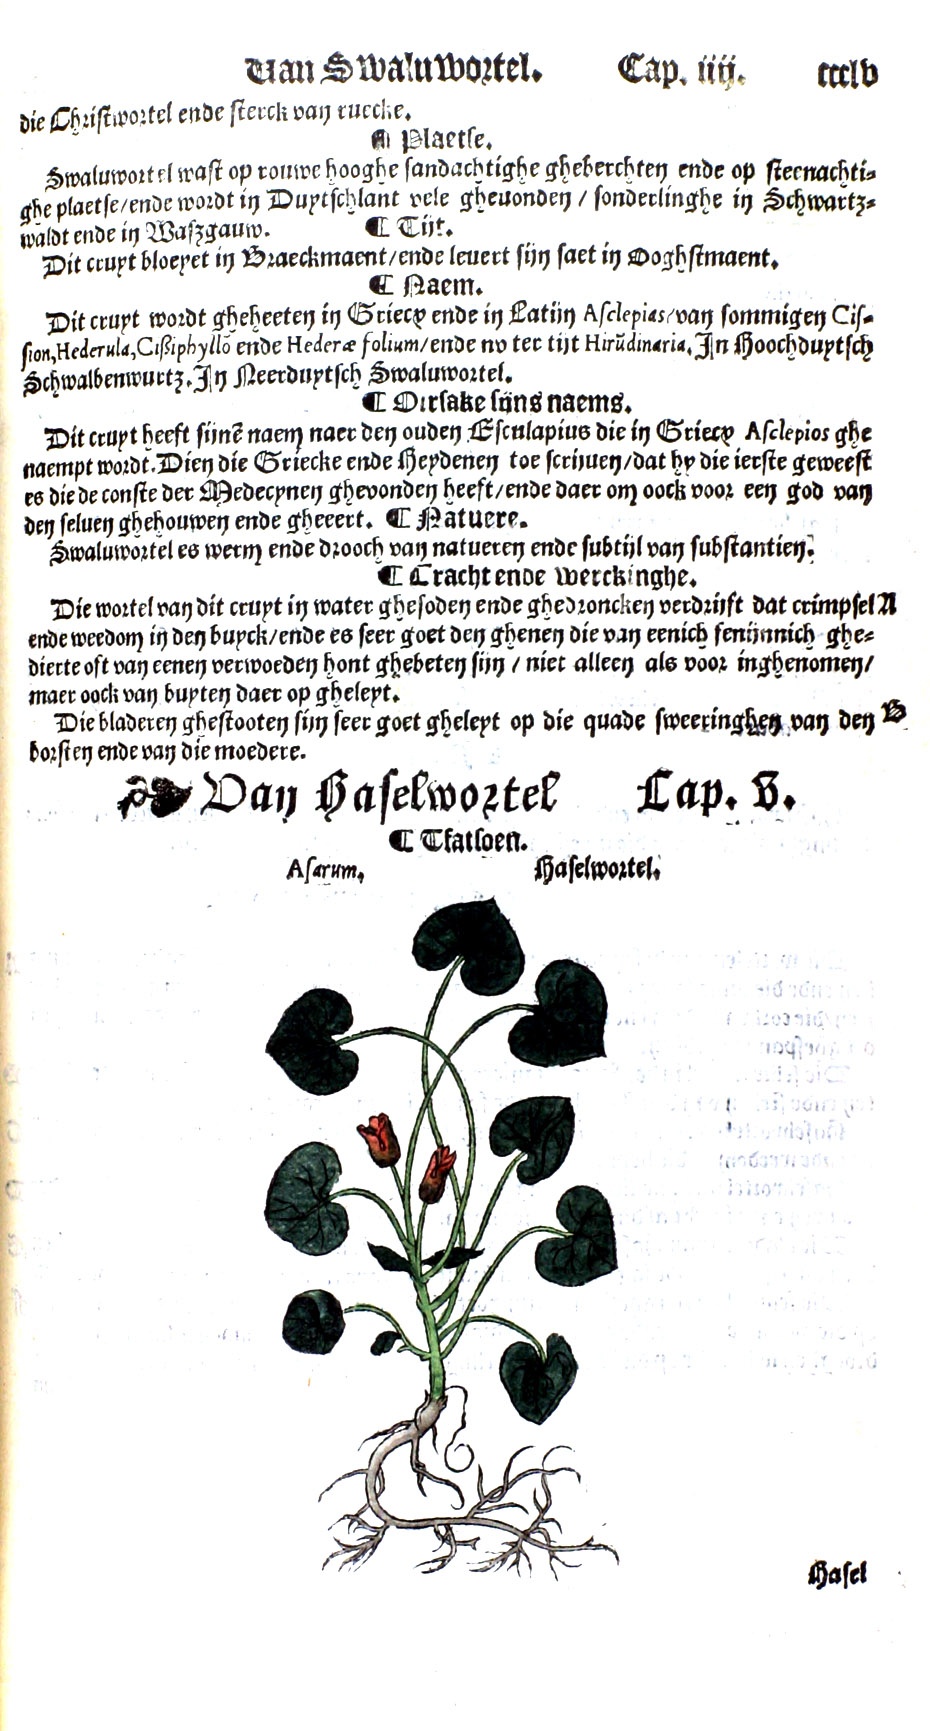 Van Swaluwortel. Cap. iiij. ccclv
die Christwortel ende sterck van ruecke.
¶ Plaetse.
Swaluwortel wast op rouwe hooghe sandachtighe gheberchten ende op steenachti-
ghe plaetse/ende wordt in Duytschlant vele gheuonden / sonderlinghe in Schwartz-
waldt ende in Waszgauw. ¶ Tijt.
Dit cruyt bloeyet in Braeckmaent/ende leuert sijn saet in Ooghstmaent.
¶ Naem.
Dit cruyt wordt gheheeten in Griecx ende in Latijn Asclepias/van sommigen Cis-
sion, Hederula, Cißiphyllō ende Hederæ folium/ende nv ter tijt Hirūdinaria. In Hoochduytsch
Schwalbenwurtz. In Neerduytsch Swaluwortel.
¶ Oirsake sijns naems.
Dit cruyt heeft sijnē naem naer den ouden Esculapius die in Griecx Asclepios ghe
naempt wordt. Dien die Griecke ende Heydenen toe scrijuen/dat hy die ierste geweest
es die de conste der Medecynen ghevonden heeft/ende daer om oock voor een god van
den seluen ghehouwen ende gheeert. ¶ Natuere.
Swaluwortel es werm ende drooch van natueren ende subtijl van substantien.
¶ Cracht ende werckinghe.
Die wortel van dit cruyt in water ghesoden ende ghedroncken verdrijft dat crimpsel A
ende weedom in den buyck/ende es seer goet den ghenen die van eenich fenijnnich ghe-
dierte oft van eenen verwoeden hont ghebeten sijn / niet alleen als voor inghenomen/
maer oock van buyten daer op gheleyt.
Die bladeren ghestooten sijn seer goet gheleyt op die quade sweeringhen van den B
borsten ende van die moedere.
Van Haselwortel Cap. v.
¶ Tfatsoen.
Asarum. Haselwortel.
Hasel